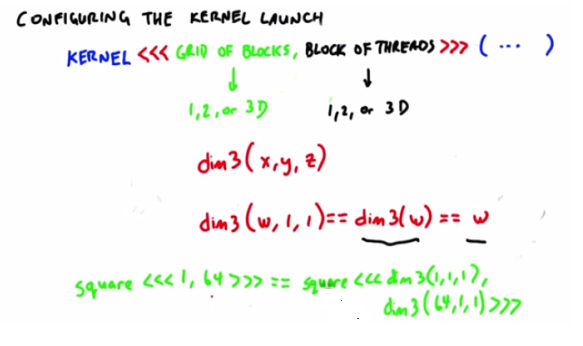 CONFIGURING THE KERNEL LAUNCH
KERNEL <<< GRID OF BLOCKS, BLOCK OF THREADS >>> ( ... )
1,2, or 3D 1,2, or 3D
dim3(x,y,z)
dim3(w,1,1)== dim3(w) == w
square <<< 1, 64 >>> == square <<< dim3(1,1,1),
dim3(64,1,1)>>>